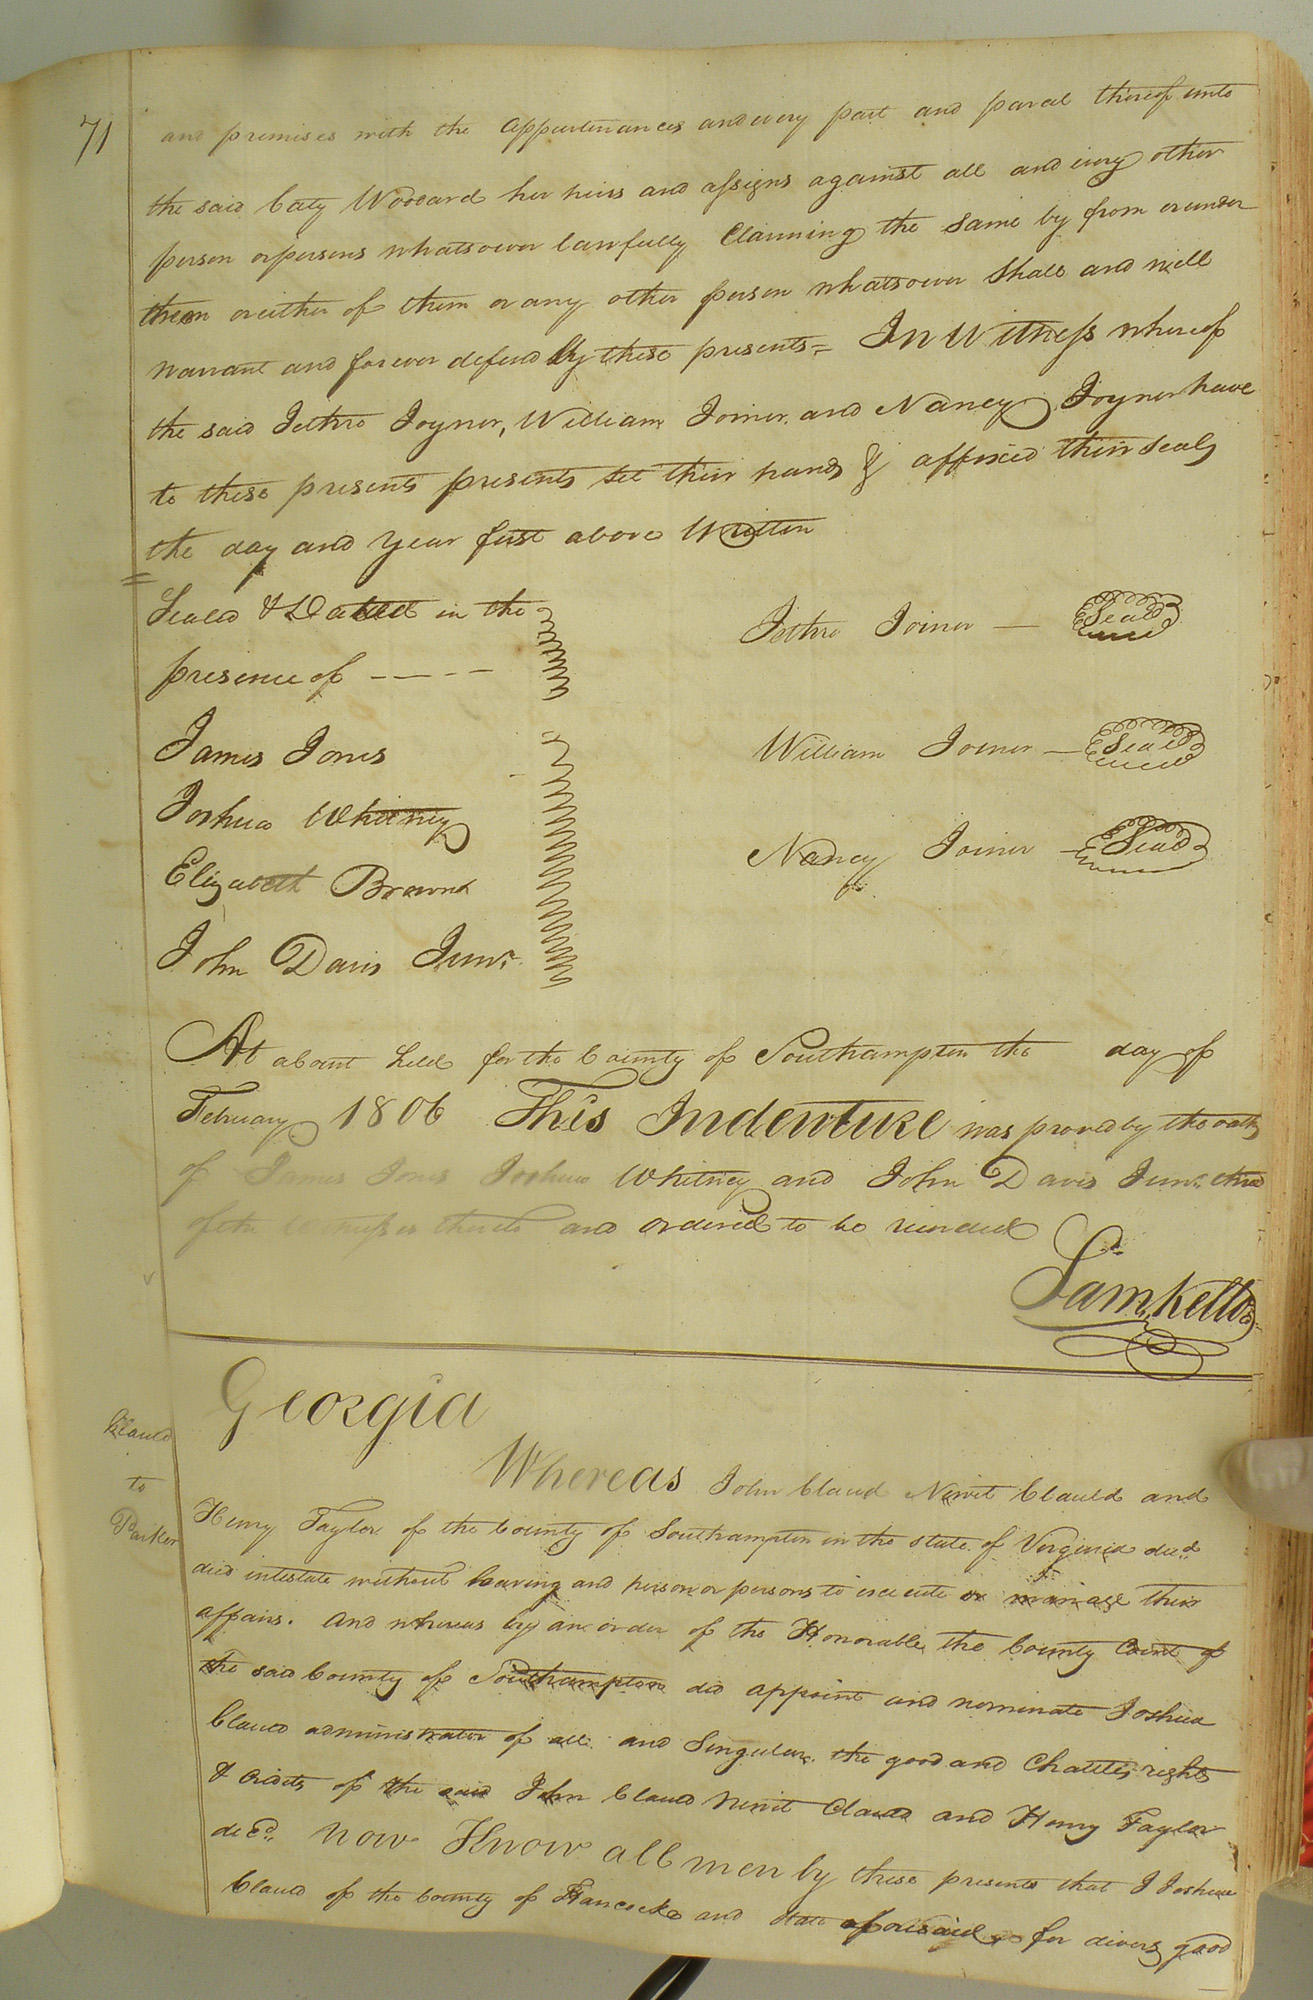 71
and premises with the appurtenances and every part and parcel thereof unto
the said Caty Woodard her heirs and assigns against all and every other
person or persons whatsoever lawfully Claiming the same by from or under
them or either of them or any other person whatsoever Shall and will
warrant and forever defend by these presents = In Witness whereof
the said Jethro Joyner, William Joiner, and Nancy Joyner have
to these presents presents set their hands & affixed their seals
the day and Year first above Written
Seald & Dated in the
presence of - - - -
Jethro Joiner — Seal
James Jones
William Joiner — Seal
Joshua Whitney
Nancy Joiner — Seal
Elizabeth Brown
John Davis Junr.
At a Court held for the County of Southampton the day of
February 1806 This Indenture was proved by the oaths
of James Jones Joshua Whitney and John Davis Junr. three
of the Witnesses thereto and ordered to be recorded
Saml. Kello
Georgia
Claud
to
Parker
Whereas John Claud Newit Clauld and
Henry Taylor of the County of Southampton in the state of Virginia decd.
died intestate without leaving and person or persons to execute or manage their
affairs. And whereas by an order of the Honorable the County Court of
the said County of Southampton did appoint and nominate Joshua
Claud administrator of all and Singular the good and Chatters rights
& Cridits of the said John Claud Newit Claud and Henry Taylor
decd. Now Know all men by these presents that I Joshua
Claud of the County of Hancock and state aforesaid, for divers good